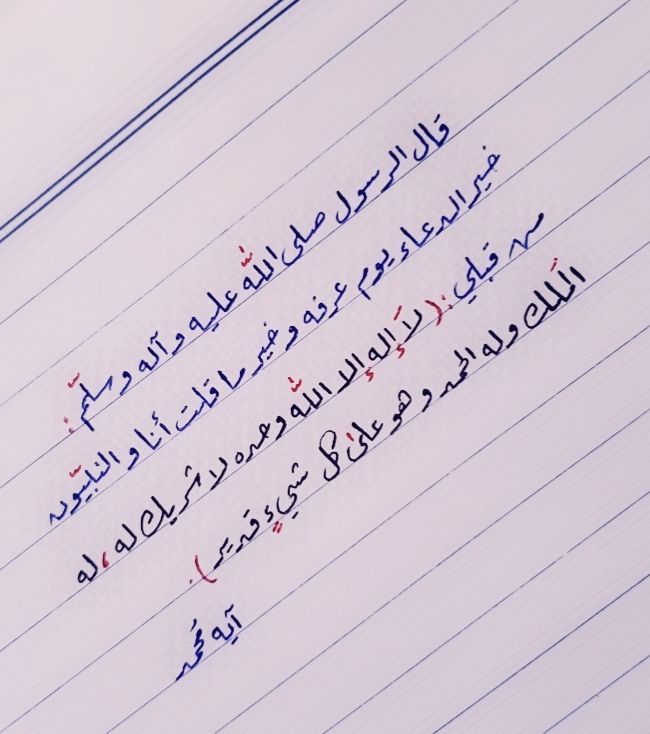 قال الرسول صلى اللّه عليه وآله وسلّم :
خير الدعاء يوم عرفه وخير ما قلت أنا والنبيّون
من قبلي : ( لَا إِله إِلا اللّه وحده لا شريك له ، له
المُلك وله الحمد وهو على كل شيءٍ قدير ) .
آيه مُحمد